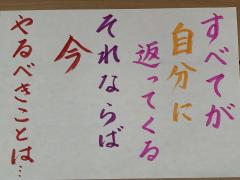 すべてが
自分に
返ってくる
それならば
今
やるべきことは…